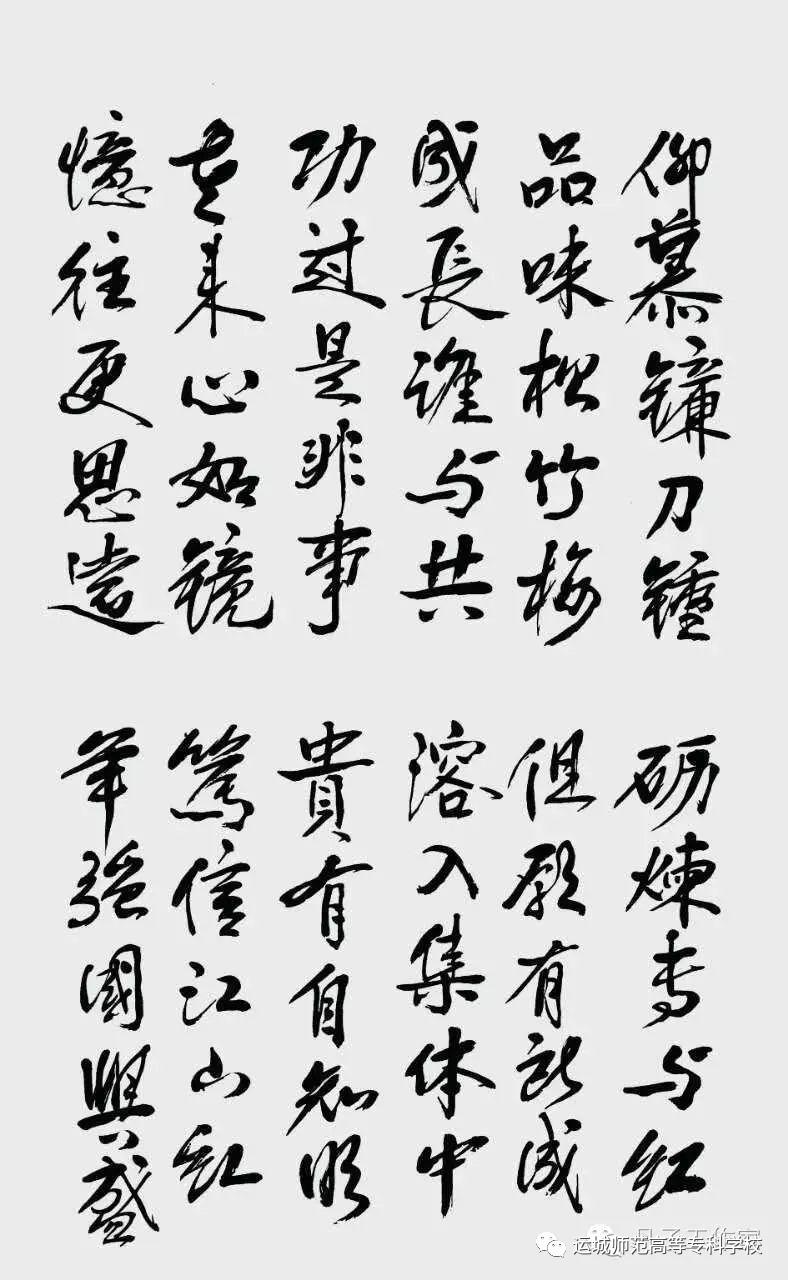 仰慕镰刀锤
砺煉专与红
品味松竹梅
但愿有所成
成長谁与共
溶入集体中
功过是非事
貴有自知明
老来心如镜
笃信江山红
憶往更思遠
军强國興盛
运城师范高等专科学校